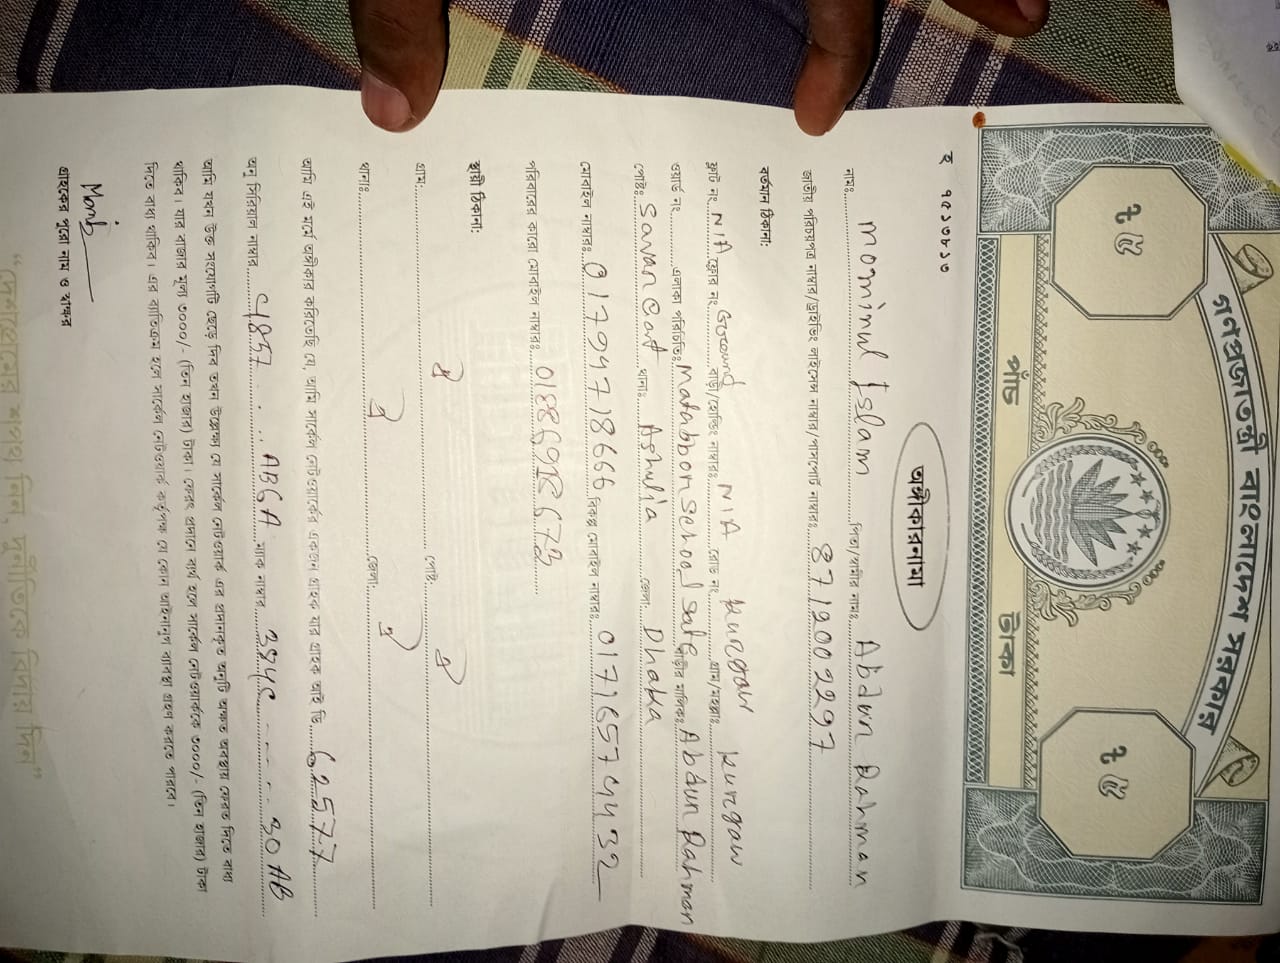 গণপ্রজাতন্ত্রী বাংলাদেশ সরকার
৳ ৫
৳ ৫
পাঁচ টাকা
অঙ্গীকারনামা
নাম: Mominul Islam পিতা/স্বামীর নাম: Abdur Rahman
জাতীয় পরিচয়পত্র নাম্বার/ড্রাইভিং লাইসেন্স নাম্বার/পাসপোর্ট নাম্বার: 8712002297
বর্তমান ঠিকানা:
ফ্লাট নং: N/A ফ্লোর নং: Ground বাড়ী/হোল্ডিং নাম্বার: N/A রোড নং: গ্রাম/মহল্লা: kurgaw kurgaw
ওয়ার্ড নং: এলাকা পরিচিতি: Matabbon school sate বাড়ীর মালিক: Abdur Rahman
পোষ্ট: Savar Cant থানা: Ashulia জেলা: Dhaka
মোবাইল নাম্বার: 01794718666 বিকল্প মোবাইল নাম্বার: 01716574432
পরিবারের কারো মোবাইল নাম্বার:
স্থায়ী ঠিকানা:
গ্রাম: ঐ পোষ্ট: ঐ
থানা: ঐ জেলা: ঐ
আমি এই মর্মে অঙ্গীকার করিতেছি যে, আমি সার্কেল নেটওয়ার্কের একজন গ্রাহক যার গ্রাহক আই ডি, 62577
অনু সিরিয়াল নাম্বার AB6A ম্যাক নাম্বার 30 AB
আমি যখন উক্ত সংযোগটি ছেড়ে দিব তখন উল্লেখ্য যে সার্কেল নেটওয়ার্ক এর প্রদানকৃত অনুটি অক্ষত অবস্থায় ফেরত দিতে বাধ্য
থাকিব। যার বাজার মূল্য ৩০০০/- (তিন হাজার) টাকা। ফেরৎ প্রদানে ব্যর্থ হলে সার্কেল নেটওয়ার্ককে ৩০০০/- (তিন হাজার) টাকা
দিতে বাধ্য থাকিব। এর ব্যতিক্রম হলে সার্কেল নেটওয়ার্ক কর্তৃপক্ষ যে কোন আইনানুগ ব্যবস্থা গ্রহণ করতে পারবে।
গ্রাহকের পুরো নাম ও স্বাক্ষর
“দেশপ্রেমের শপথ নিন, দুর্নীতিকে বিদায় দিন”